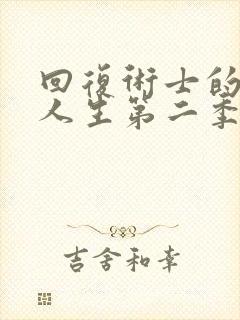 回復術士的
人生第二季
吉舍和幸